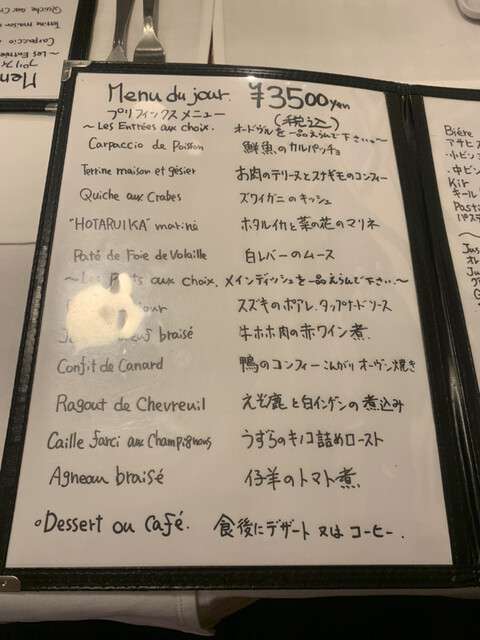 Menu du jour. ¥3500yen
プリフィックスメニュー (税込)
~Les Entrées aux choix. オードヴルを一品えらんで下さい。~
Carpaccio de Poisson 鮮魚のカルパッチョ
Terrine maison et gésier お肉のテリーヌとスナギモのコンフィー
Quiche aux Crabes ズワイガニのキッシュ
"HOTARUIKA" mariné ホタルイカと菜の花のマリネ
Paté de Foie de Volaille 白レバーのムース
~Les Plats aux choix. メインディッシュを一品えらんで下さい。~
jour スズキのポアレ.タップナードソース
braisé 牛ホホ肉の赤ワイン煮.
Confit de Canard 鴨のコンフィーこんがりオーヴン焼き
Ragout de Chevreuil えぞ鹿と白インゲンの煮込み
Caille farci aux Champignons うずらのキノコ詰めロースト
Agneau braisé 仔羊のトマト煮.
Dessert ou Café. 食後にデザート又はコーヒー.
Menu
プリフィ
~Les Entrée
Carpaccio
Terrine maison
Quiche aux Cr
Biére
アサヒス
・小ビン
・中ビン
Kir
キール
Pasti
パステ
Jus
オレ
Ju